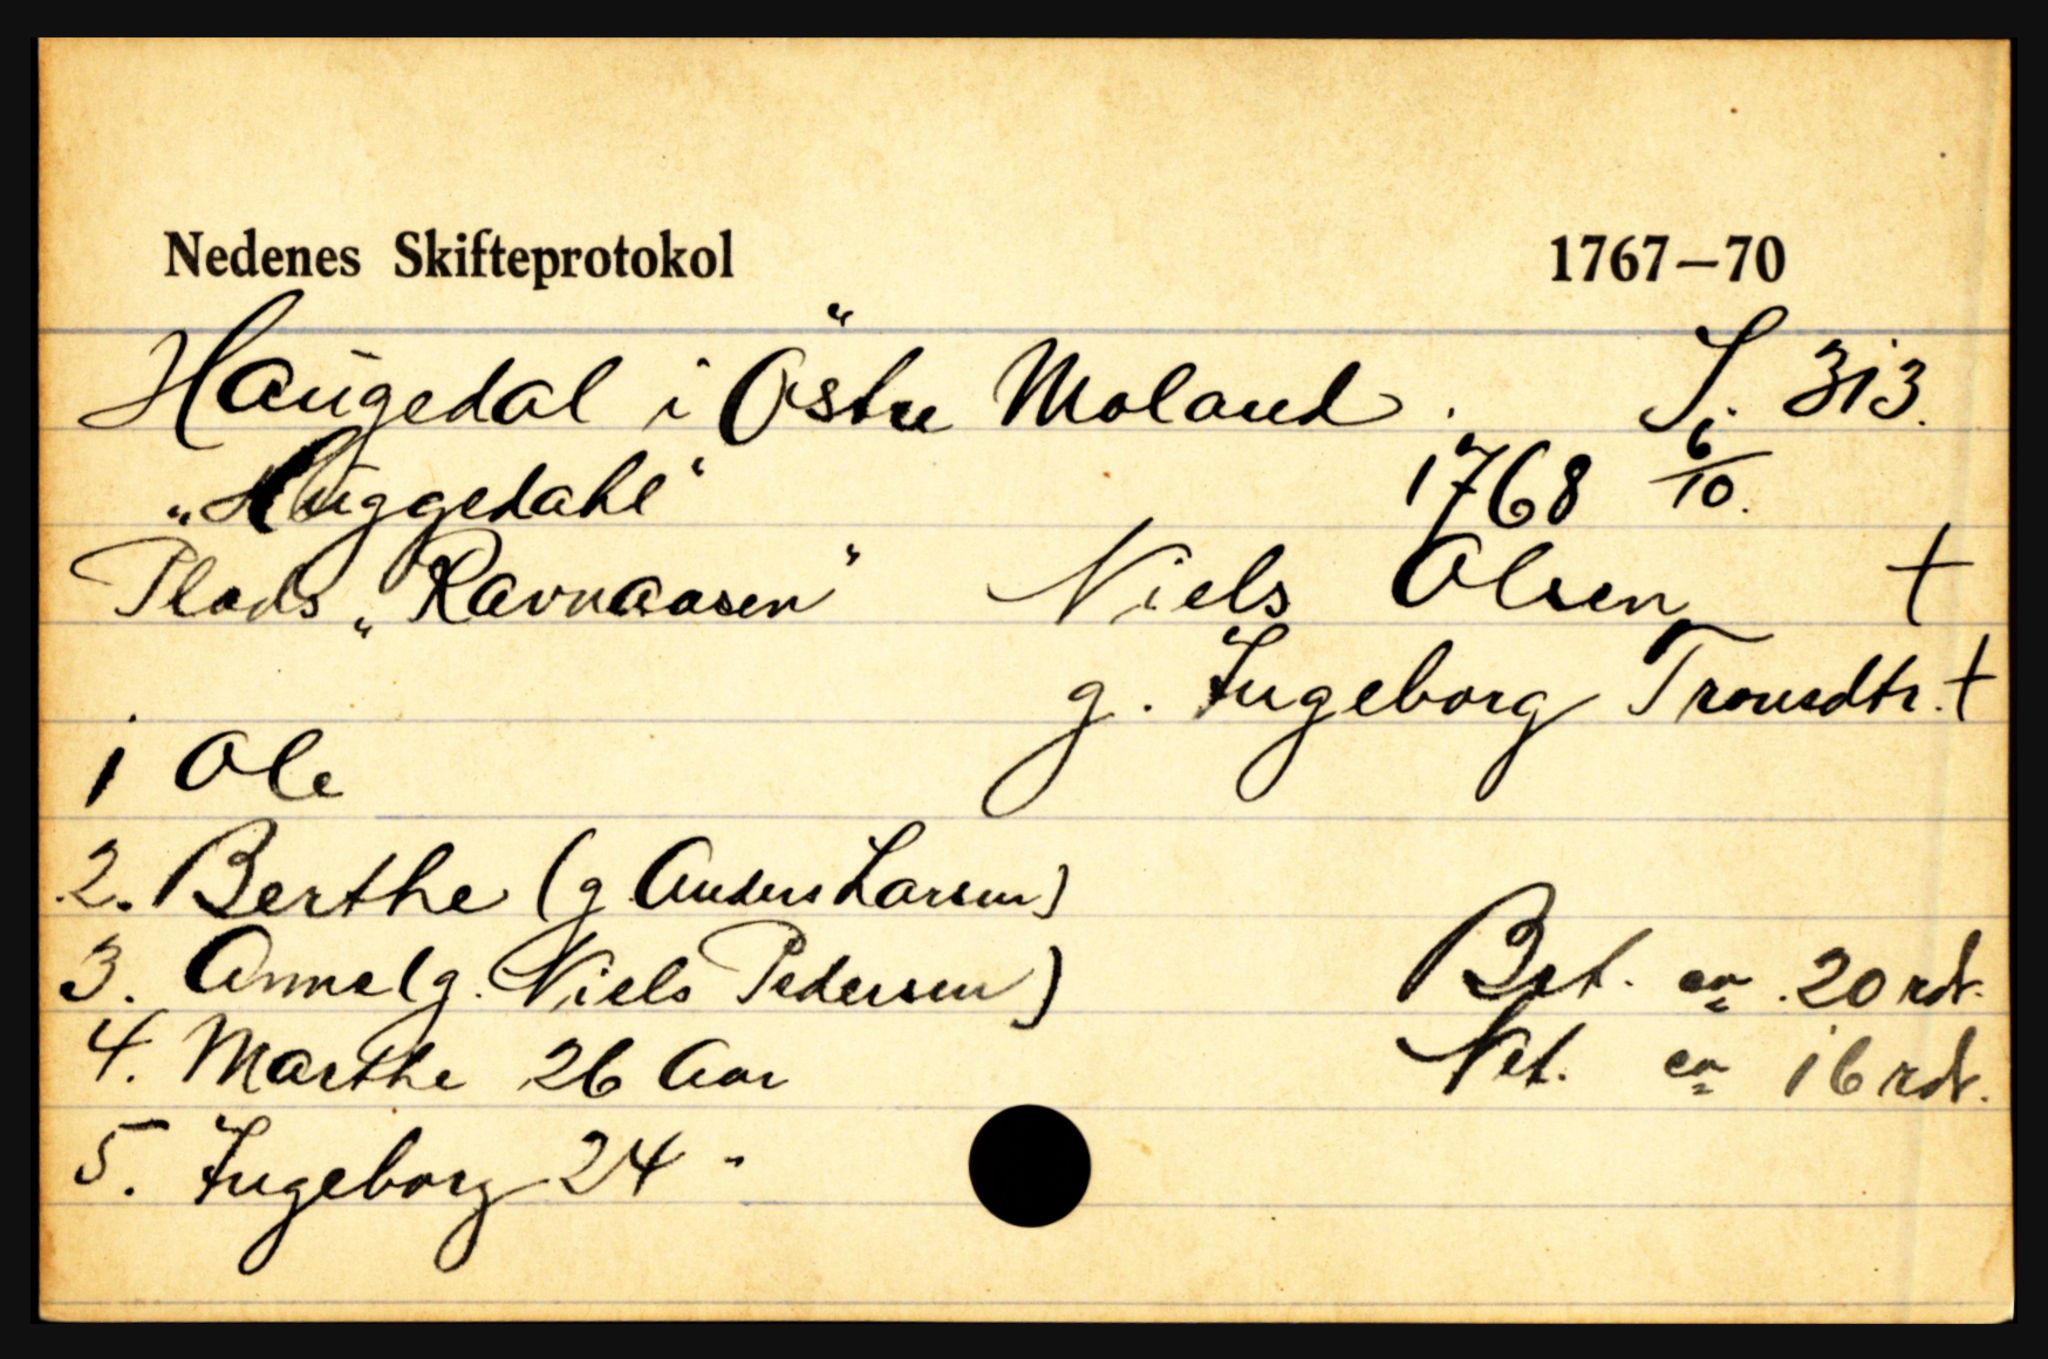 Nedenes Skifteprotokol 1767–70
Haugedal i Östre Moland. S. 313.
„Huggedahl“ 1768 6/10.
Plads „Ravnaasen“ Niels Olsen †
g. Ingeborg Tronsdtr. †
1 Ole
2. Berthe (g. Anders Larsen)
3. Anne (g. Niels Pedersen) Brt. ca. 20 rdr.
4. Marthe 26 Aar Net. ca. 16 rdr.
5. Ingeborg 24 "